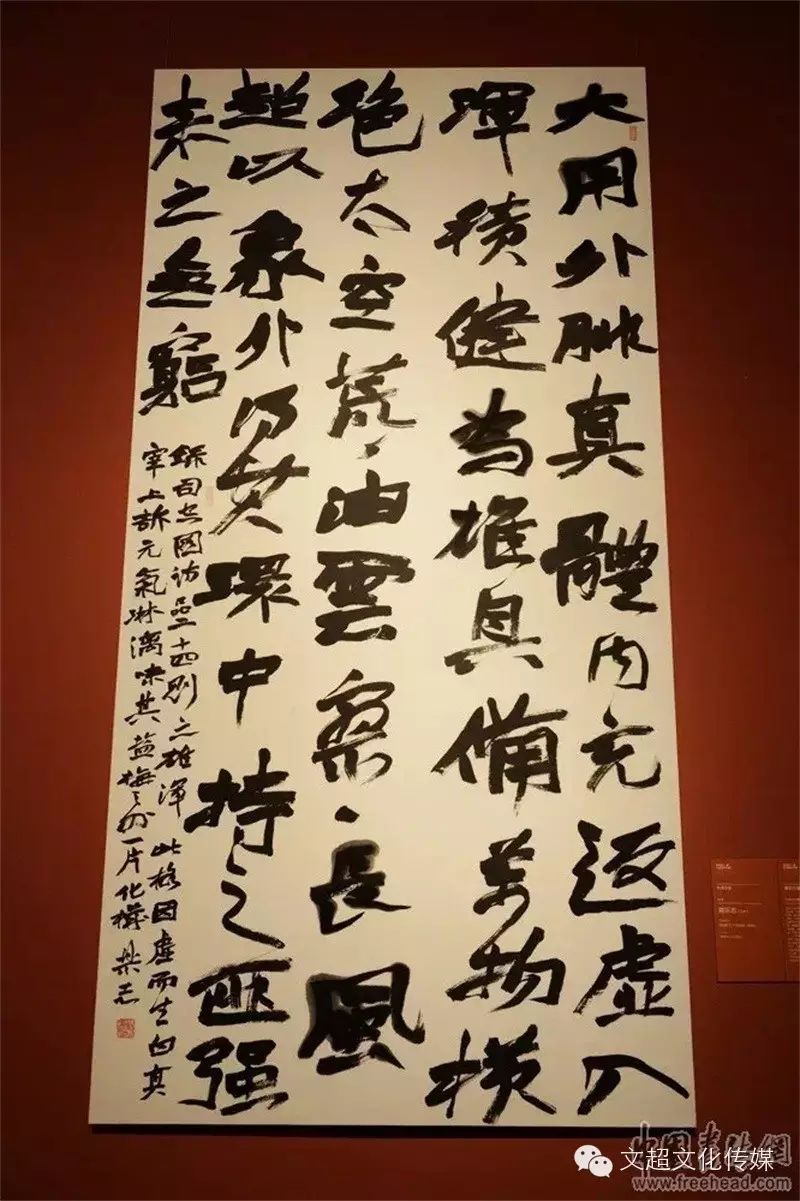 大用外腓真體内充返虛入
渾積健為雄具備萬物横
絕太空荒々油雲寥々長風
超以象外得其環中持之匪强
来之無窮
録司空圖詩品二十四則之雄渾 此格因虛而生由真
宰上訴元氣淋漓味其梅之外一片化機
中国书法網
文超文化传媒
www.freehead.com